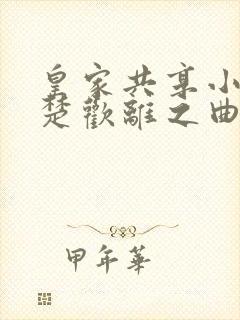 皇家共享小
楚歡離之曲
甲年華